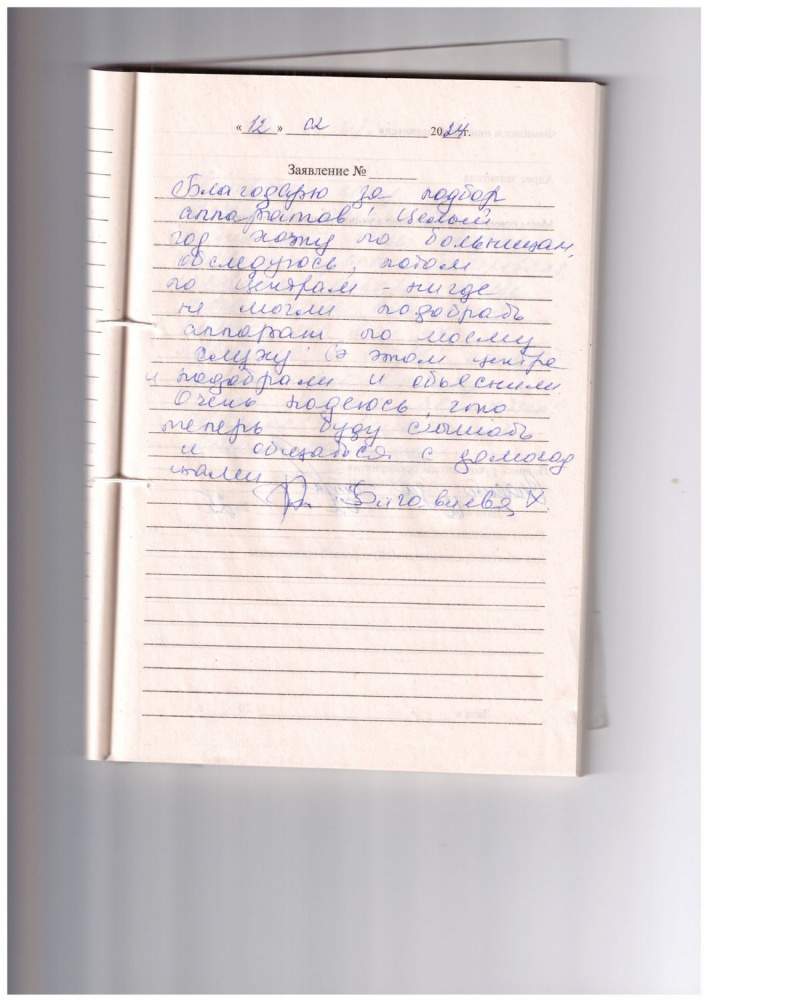 «12» 02 2024г.
Заявление №
Благодарю за подбор
аппаратов! Целый
год хожу по больницам,
обследуюсь, потом
по центрам - нигде
не могли подобрать
аппарат по моему
слуху. В этом центре
и подобрали и объяснили
Очень надеюсь, что
теперь буду слышать
и общаться с домочад
цами